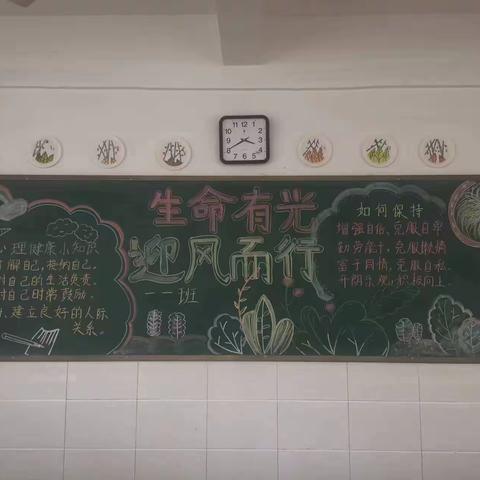 生命有光
迎风而行
一一班
心理健康小知识
了解自己,接纳自己。
对自己的生活负责。
对自己时常鼓励。
建立良好的人际
关系。
如何保持
增强自信,克服自卑
勤劳
克服懒惰
富于同情,克服自私
开朗乐观,积极向上。